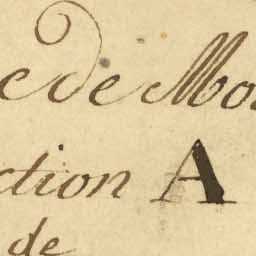 e de Mo
ction A
de